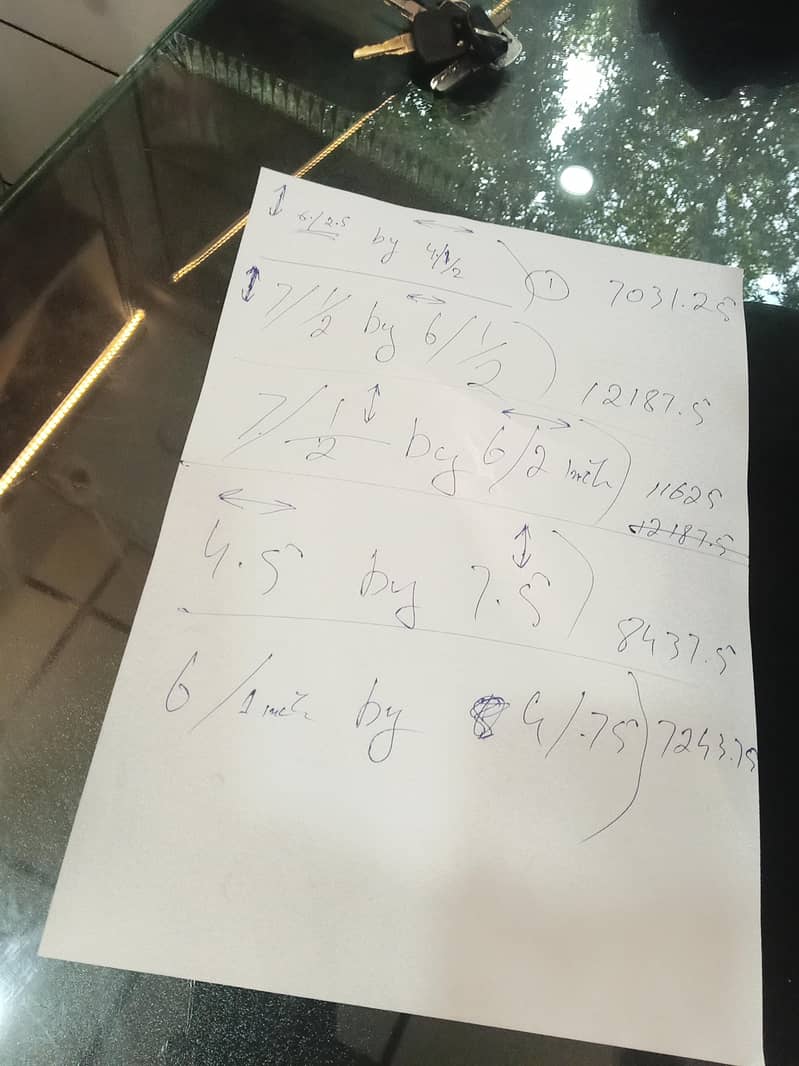 6./2.5 by 4/1/2 1 7031.25
7/1/2 by 6/1/2 12187.5
7/1/2 by 6/2 inch 11625
12187.5
4.5 by 7.5 8437.5
6/1 inch by 4/.75 7243.75